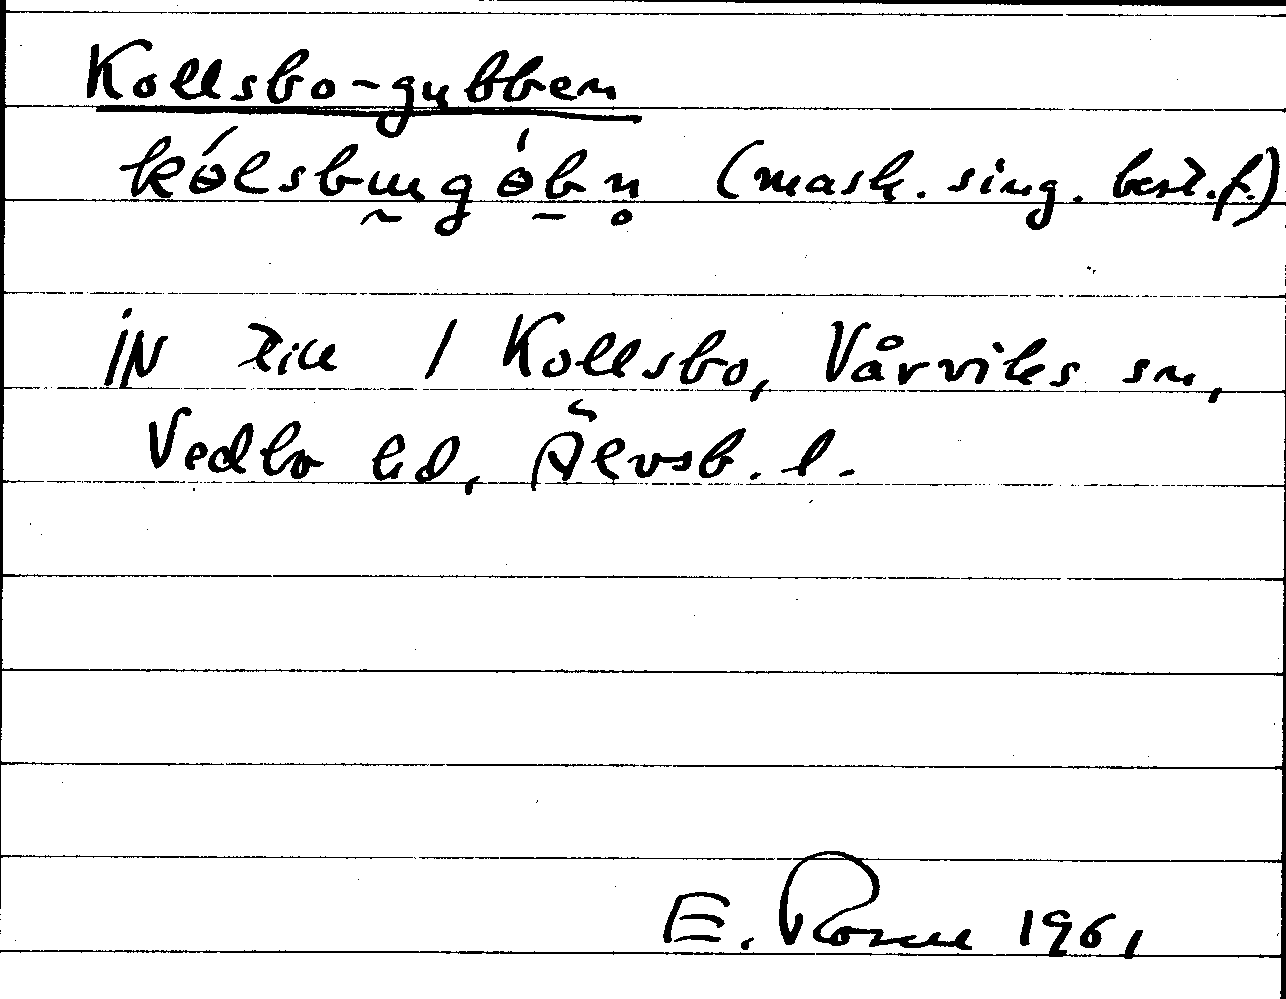 Kollsbo-gubben
kɵ́lsbɯgɵ́bn̥ (mask. sing. best. f.)
IN till 1 Kollsbo, Vårviks sn,
Vedbo hd, Älvsb. l.
E. Rosell 1961